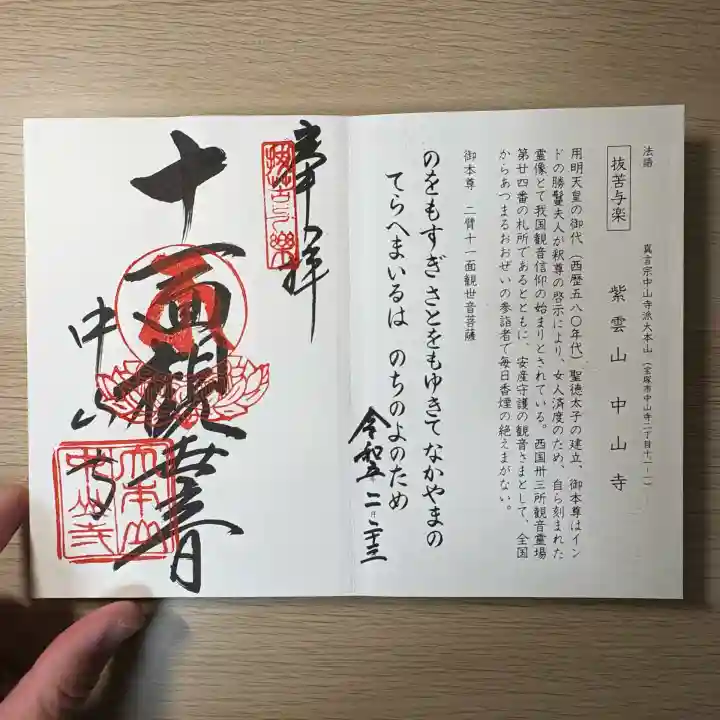 法語
抜苦与楽
真言宗中山寺派大本山(宝塚市中山寺二丁目十一ー一)
紫雲山中山寺
用明天皇の御代(西歴五八〇年代)聖徳太子の建立、御本尊はイン
ドの勝鬘夫人が釈尊の啓示により、女人済度のため、自ら刻まれた
霊像とて我国観音信仰の始まりとされている。西国卅三所観音霊場
第廿四番の札所であるとともに、安産守護の観音さまとして、全国
からあつまるおおぜいの参詣者で毎日香煙の絶えまがない。
御本尊 二臂十一面観世音菩薩
のをもすぎ さとをもゆきて なかやまの
てらへまいるは のちのよのため
令和五年二月二十三
奉拝
抜苦与楽
十一面観世音
中山寺
大本山
中山寺